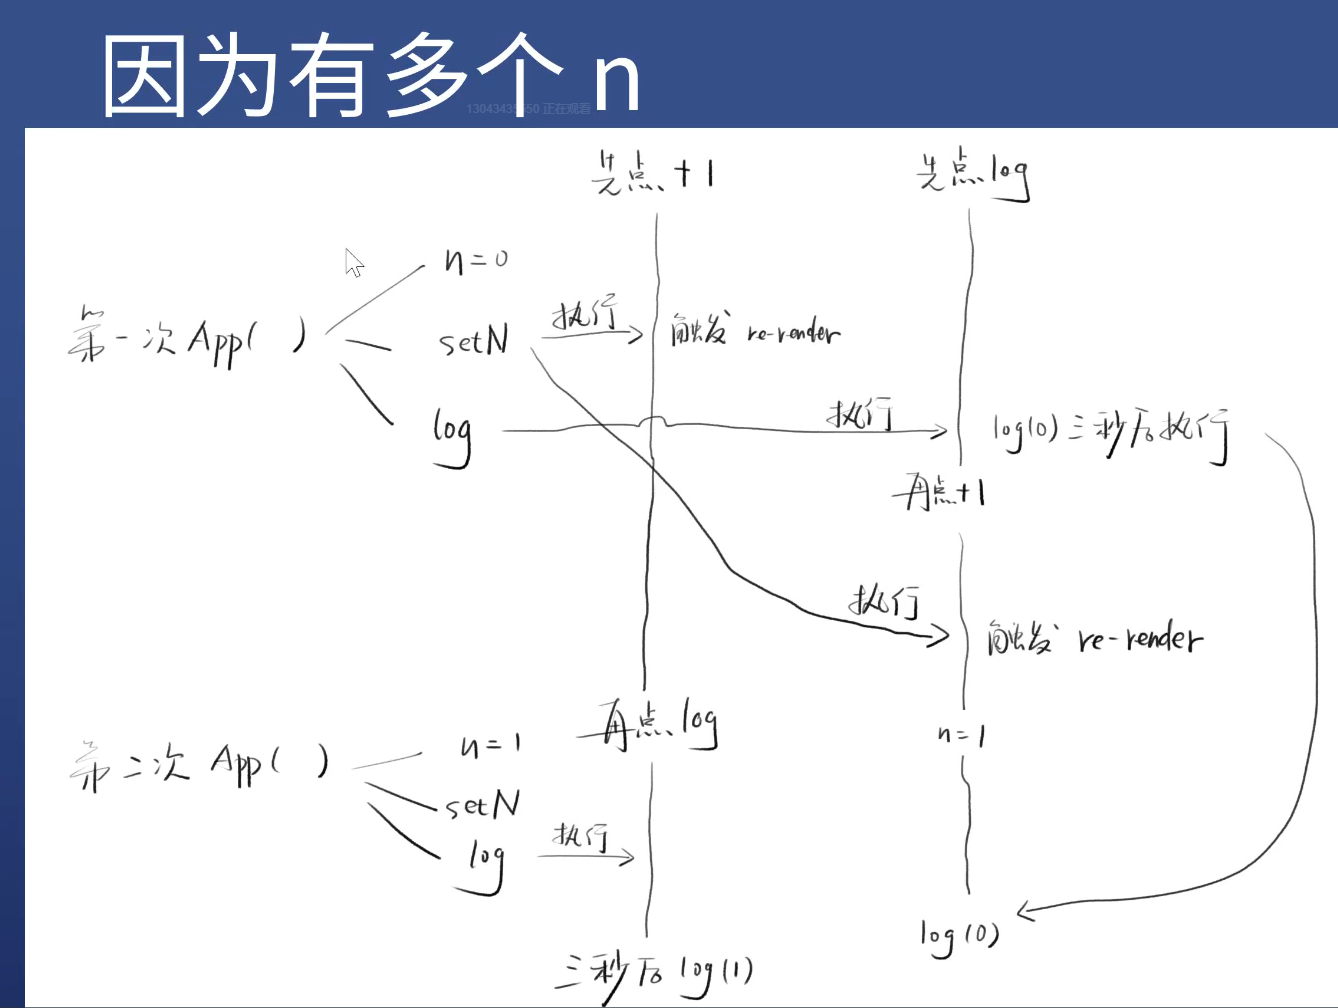 因为有多个 n
先点 +1
先点 log
n=0
第一次 App( )
setN
执行
触发 re-render
log
执行
log(0) 三秒后执行
再点+1
执行
触发 re-render
再点 log
n=1
第二次 App( )
n=1
setN
log
执行
log(0)
三秒后 log(1)